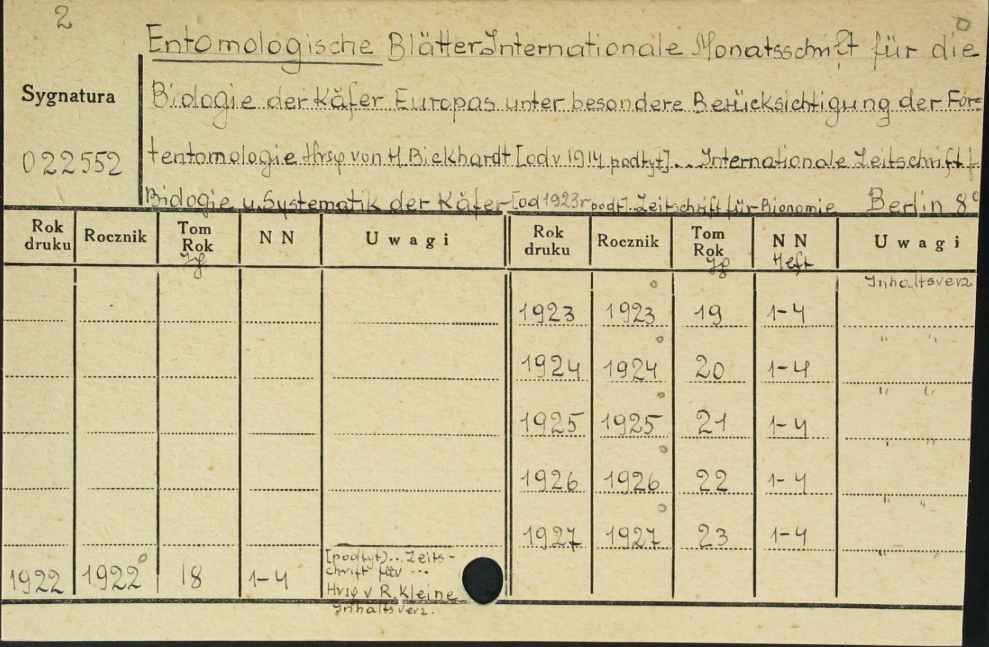 2
Entomologische Blätter Internationale Monatsschrift für die
Sygnatura
Biologie der Käfer Europas unter besondere Berücksichtigung der For=
022552
tentomologie Hrsg von H. Bickhardt [od v 1914 podtyt]... Internationale Zeitschrift f.
Biologie u. Systematik der Käfer [od 1923r podt]. Zeitschrift für Bionomie Berlin 8°
Rok druku Rocznik Tom Rok Jg NN Uwagi Rok druku Rocznik Tom Rok Jg NN Heft Uwagi
Inhaltsverz
1923 1923 19 1-4
" "
1924 1924 20 1-4
" "
1925 1925 21 1-4
" "
1926 1926 22 1-4
" "
1927 1927 23 1-4
" "
1922 1922 18 1-4 [podtyt]... Zeits-
schrift für ...
Hrsg v R. Kleine
Inhaltsverz.